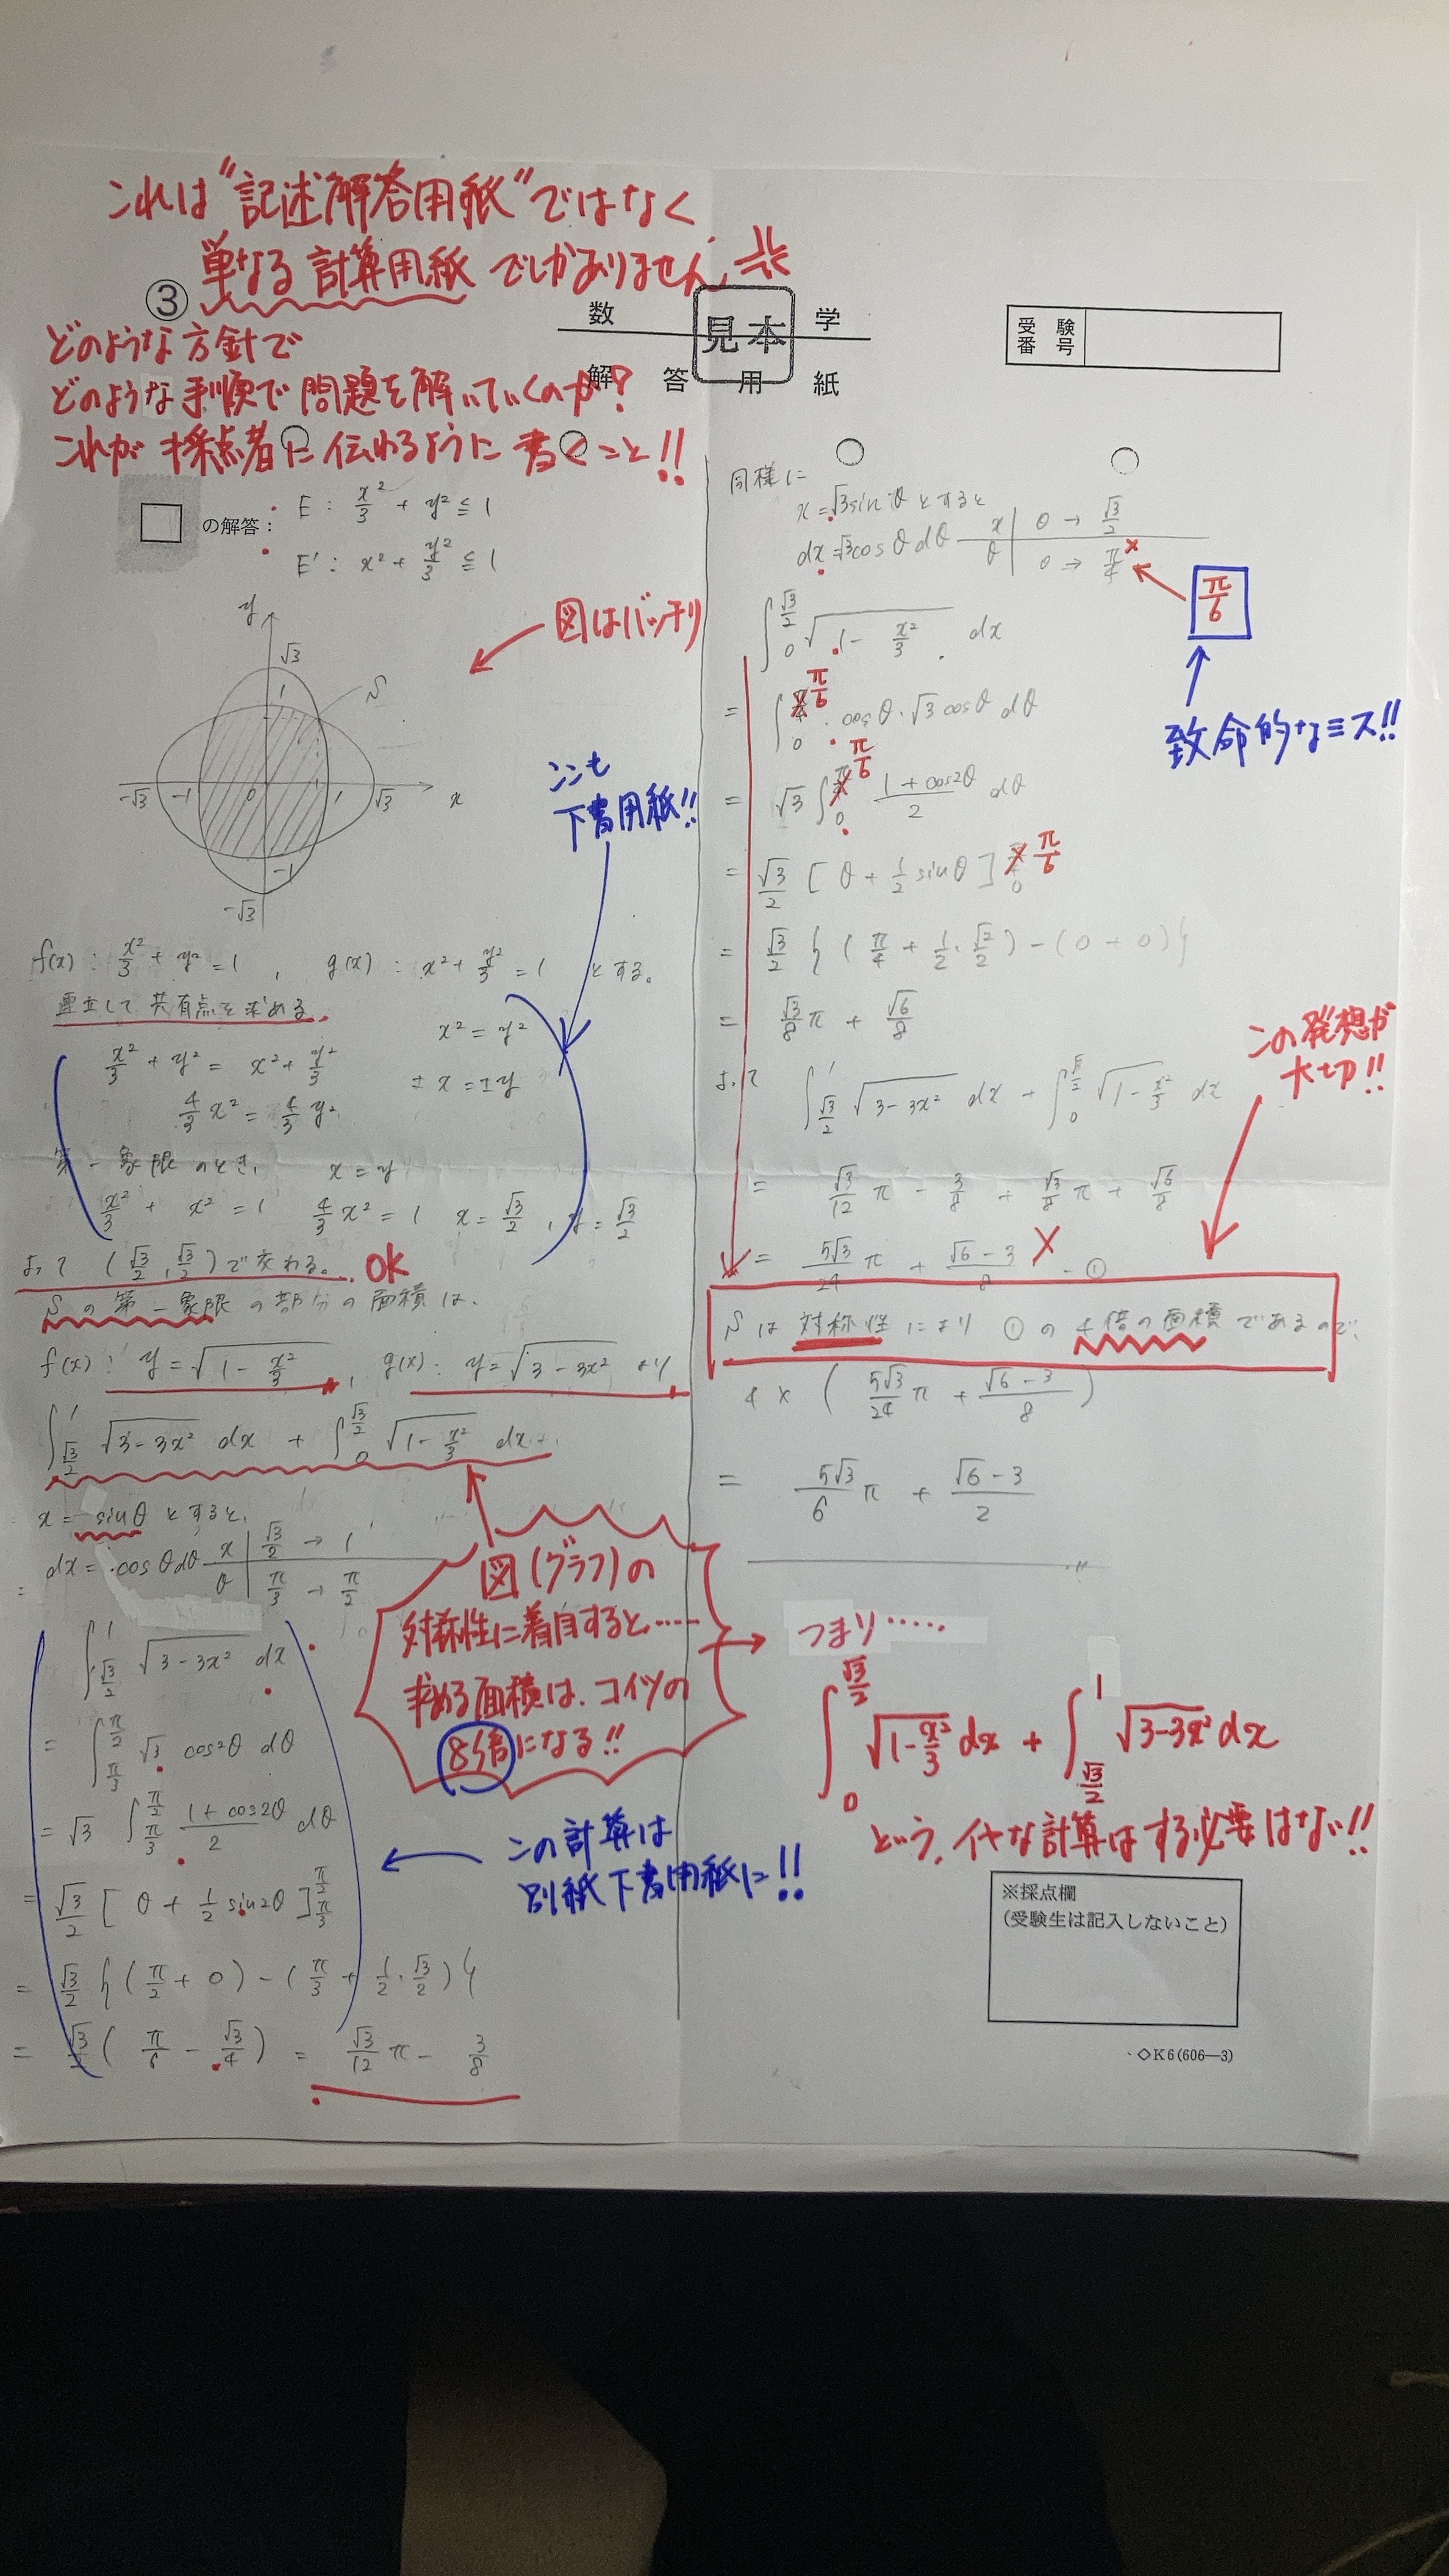 これは"記述解答用紙"ではなく
単なる計算用紙でしかありません
③
どのような方針で
どのような手順で問題を解いていくのか?
これが採点者に伝わるように書くこと!!
数 学
見本
解 答 用 紙
受験番号
の解答:
E : x²/3 + y² ≦ 1
E' : x² + y²/3 ≦ 1
図はバッチリ
y
√3
1
S
-√3 -1 0 1 √3 x
-1
-√3
ここも
下書用紙!!
f(x) : x²/3 + y² = 1 , g(x) : x² + y²/3 = 1 とする。
連立して共有点を求める。
x²/3 + y² = x² + y²/3
4/3 x² = 4/3 y²
x² = y²
± x = ±y
第一象限のとき、 x = y
x²/3 + x² = 1 4/3 x² = 1 x = √3/2 , y = √3/2
よって (√3/2, √3/2) で交わる。 OK
Sの第一象限の部分の面積は、
f(x) : y = √(1 - x²/3) , g(x) : y = √(3 - 3x²) より
∫_{√3/2}^{1} √(3-3x²) dx + ∫_{0}^{√3/2} √(1-x²/3) dx
x = sinθ とすると、
dx = cosθ dθ
x | √3/2 → 1
θ | π/3 → π/2
∫_{√3/2}^{1} √(3-3x²) dx
= ∫_{π/3}^{π/2} √3 cos²θ dθ
= √3 ∫_{π/3}^{π/2} (1+cos2θ)/2 dθ
= √3/2 [θ + 1/2 sin2θ]_{π/3}^{π/2}
= √3/2 {(π/2 + 0) - (π/3 + 1/2・√3/2)}
= √3/2 (π/6 - √3/4) = √3/12 π - 3/8
図(グラフ)の
対称性に着目すると……
求める面積は、コイツの
8倍になる!!
この計算は
別紙下書用紙に!!
同様に
x = √3 sinθ とすると
dx = √3 cosθ dθ
x | 0 → √3/2
θ | 0 → π/4 ×
π/6
致命的なミス!!
∫_{0}^{√3/2} √(1 - x²/3) dx
= ∫_{0}^{π/6} cosθ・√3 cosθ dθ
= √3 ∫_{0}^{π/6} (1+cos2θ)/2 dθ
= √3/2 [θ + 1/2 sinθ]_{0}^{π/6}
= √3/2 {(π/4 + 1/2・√2/2) - (0+0)}
= √3/8 π + √6/8
この発想が
大切!!
よって ∫_{√3/2}^{1} √(3-3x²) dx + ∫_{0}^{√3/2} √(1-x²/3) dx
= √3/12 π - 3/8 + √3/8 π + √6/8
= 5√3/24 π + (√6-3)/8 × - ①
Sは対称性により ①の4倍の面積であるので、
4 × (5√3/24 π + (√6-3)/8)
= 5√3/6 π + (√6-3)/2
つまり……
∫_{0}^{√3/2} √(1-x²/3) dx + ∫_{√3/2}^{1} √(3-3x²) dx
という、イヤな計算はする必要はない!!
※採点欄
(受験生は記入しないこと)
◇K6(606—3)